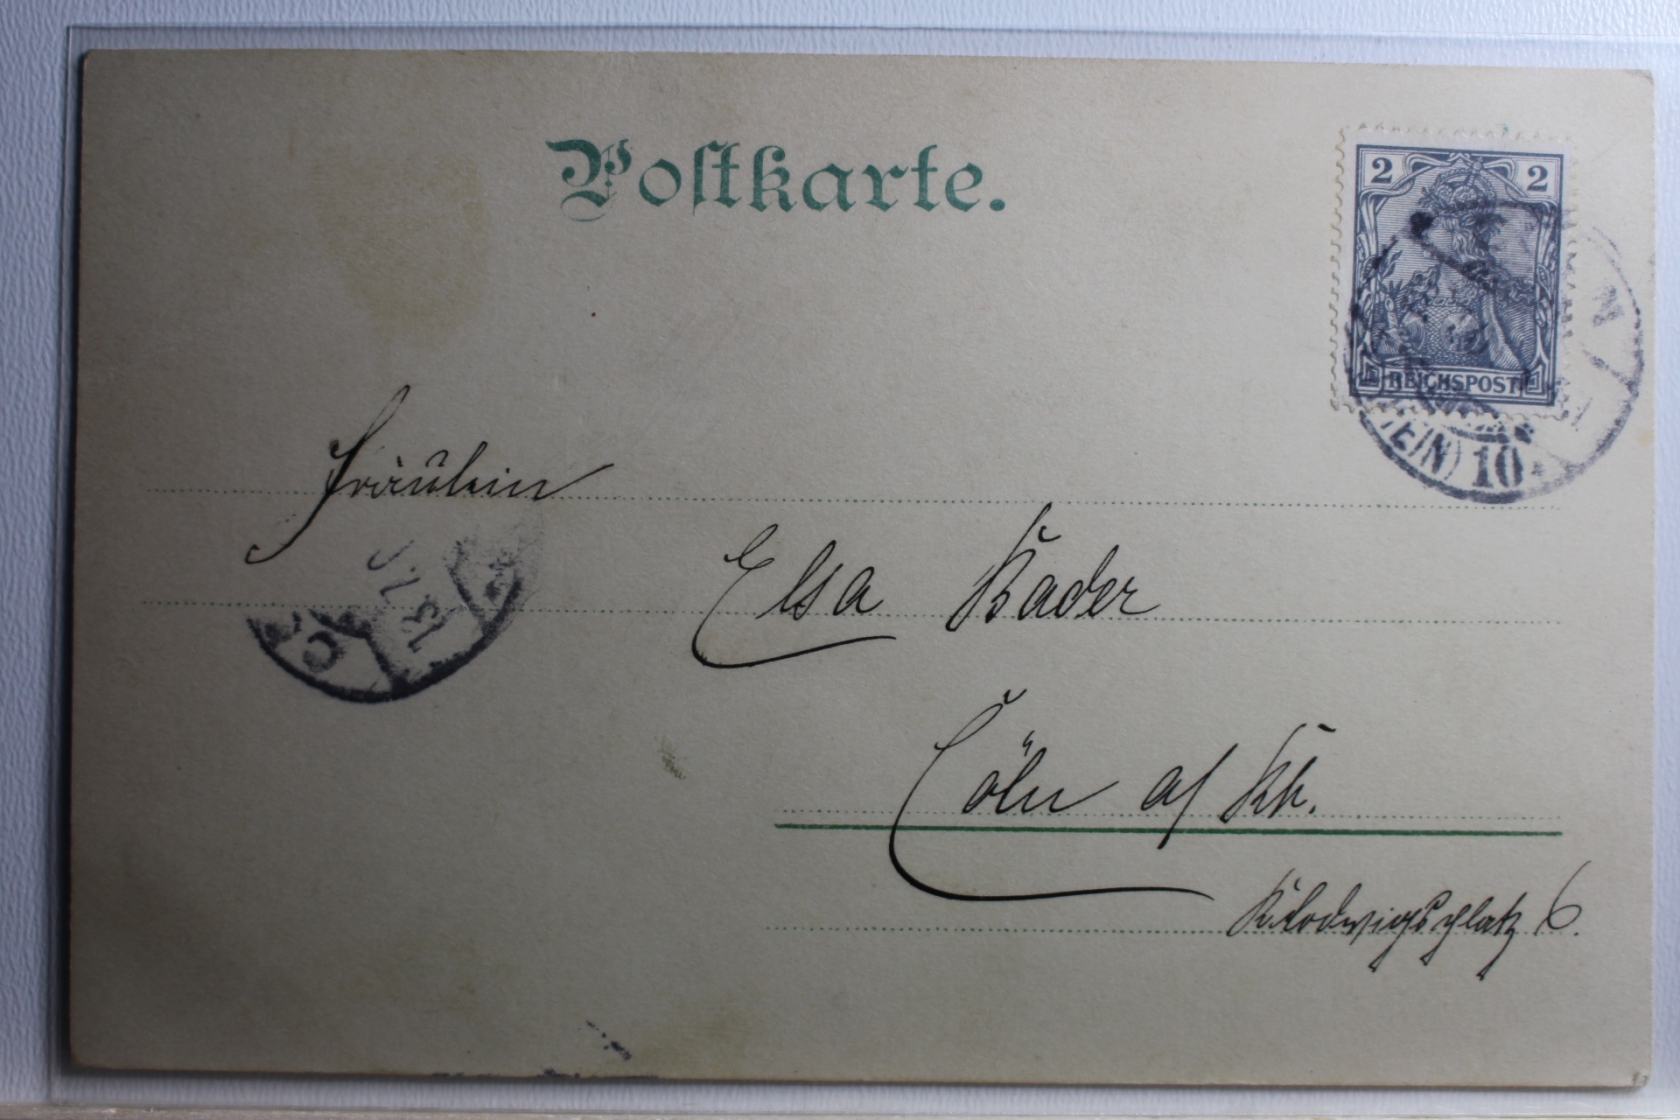 Postkarte.
2 2
REICHSPOST
EIN) 10
Fräulein
Elsa Kader
Cöln a/ Rh.
Klodwigsplatz 6.